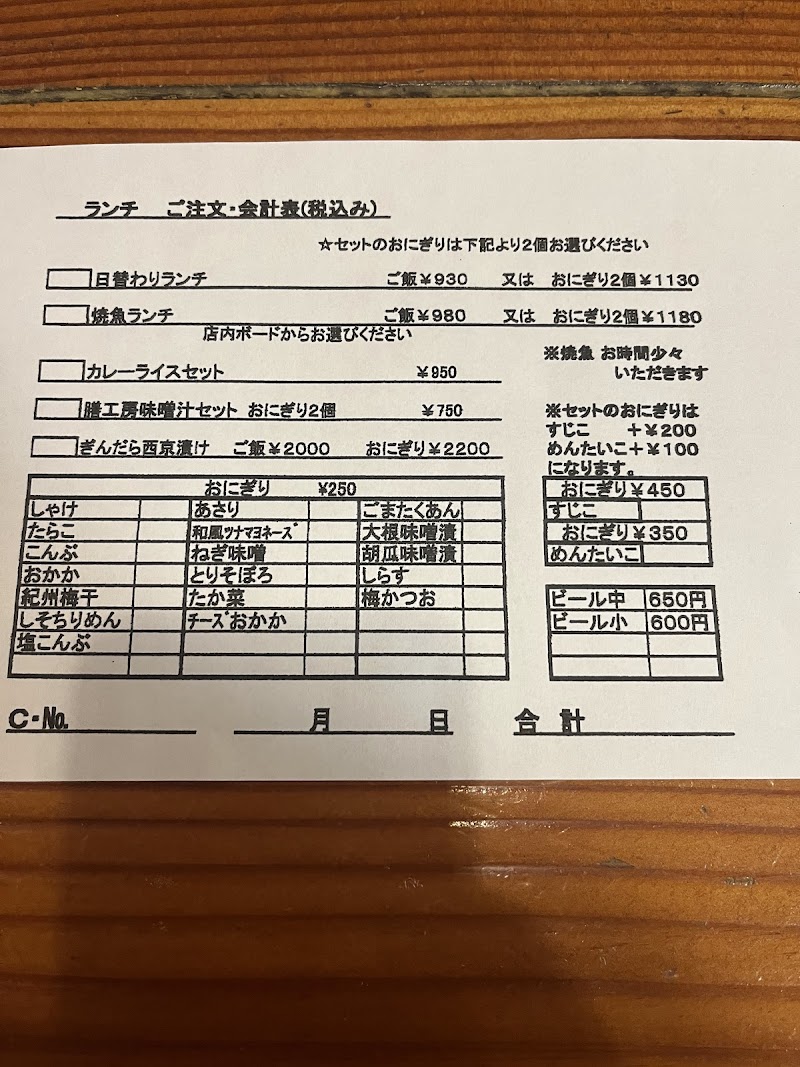 ランチ ご注文・会計表(税込み)
☆セットのおにぎりは下記より2個お選びください
日替わりランチ ご飯¥930 又は おにぎり2個¥1130
焼魚ランチ ご飯¥980 又は おにぎり2個¥1180
店内ボードからお選びください
※焼魚 お時間少々
いただきます
カレーライスセット ¥950
膳工房味噌汁セット おにぎり2個 ¥750
ぎんだら西京漬け ご飯¥2000 おにぎり¥2200
※セットのおにぎりは
すじこ +¥200
めんたいこ+¥100
になります。
おにぎり ¥250
しゃけ あさり ごまたくあん
たらこ 和風ツナマヨネーズ 大根味噌漬
こんぶ ねぎ味噌 胡瓜味噌漬
おかか とりそぼろ しらす
紀州梅干 たか菜 梅かつお
しそちりめん チーズおかか
塩こんぶ
おにぎり¥450
すじこ
おにぎり¥350
めんたいこ
ビール中 650円
ビール小 600円
C・No. 月 日 合計